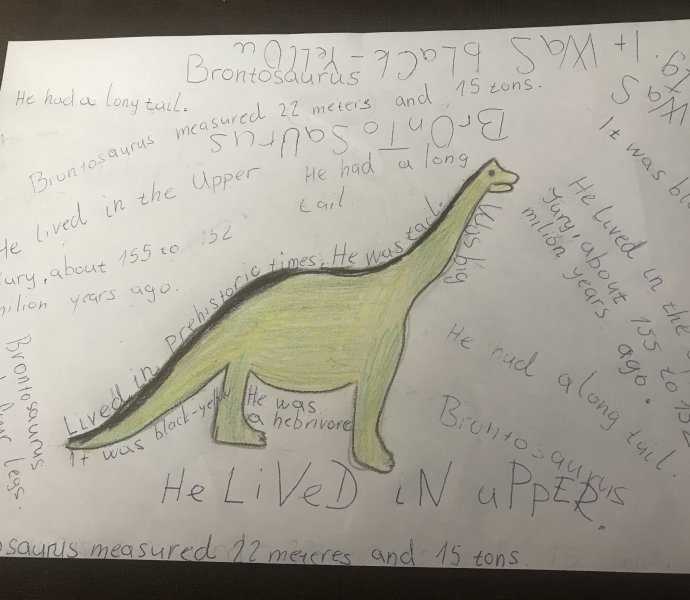 It was black-yellou
Brontosaurus
He had a long tail.
Brontosaurus measured 22 meters and 15 tons.
BrOnToSaurus
He had a long
tail.
He lived in the Upper
Jury, about 155 to 152
milion years ago.
Lived in prehistoric times. He was tall.
Was big
It was black-yell
He was
a hebrivore
He lived in the
Jury, about 155 to 152
milion years ago.
He had a long tail.
Brontosaurus
He LiVeD iN uPpER.
saurus measured 22 meteres and 15 tons
Brontosaurus
four legs.
Was
It was bla